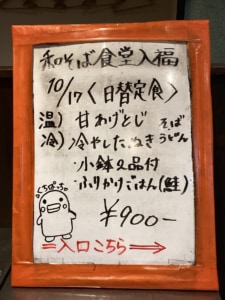 和そば食堂入福
10/17〈日替定食〉
温) 甘わげとじ そば
冷) 冷やしたぬき うどん
・小鉢2品付
・ふりかけごはん(鮭)
¥900-
くちばっち
=入口こちら⇒